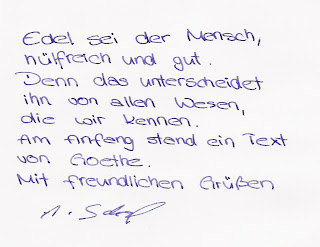 Edel sei der Mensch,
hülfreich und gut.
Denn das unterscheidet
ihn von allen Wesen,
die wir kennen.
Am Anfang stand ein Text
von Goethe.
Mit freundlichen Grüßen